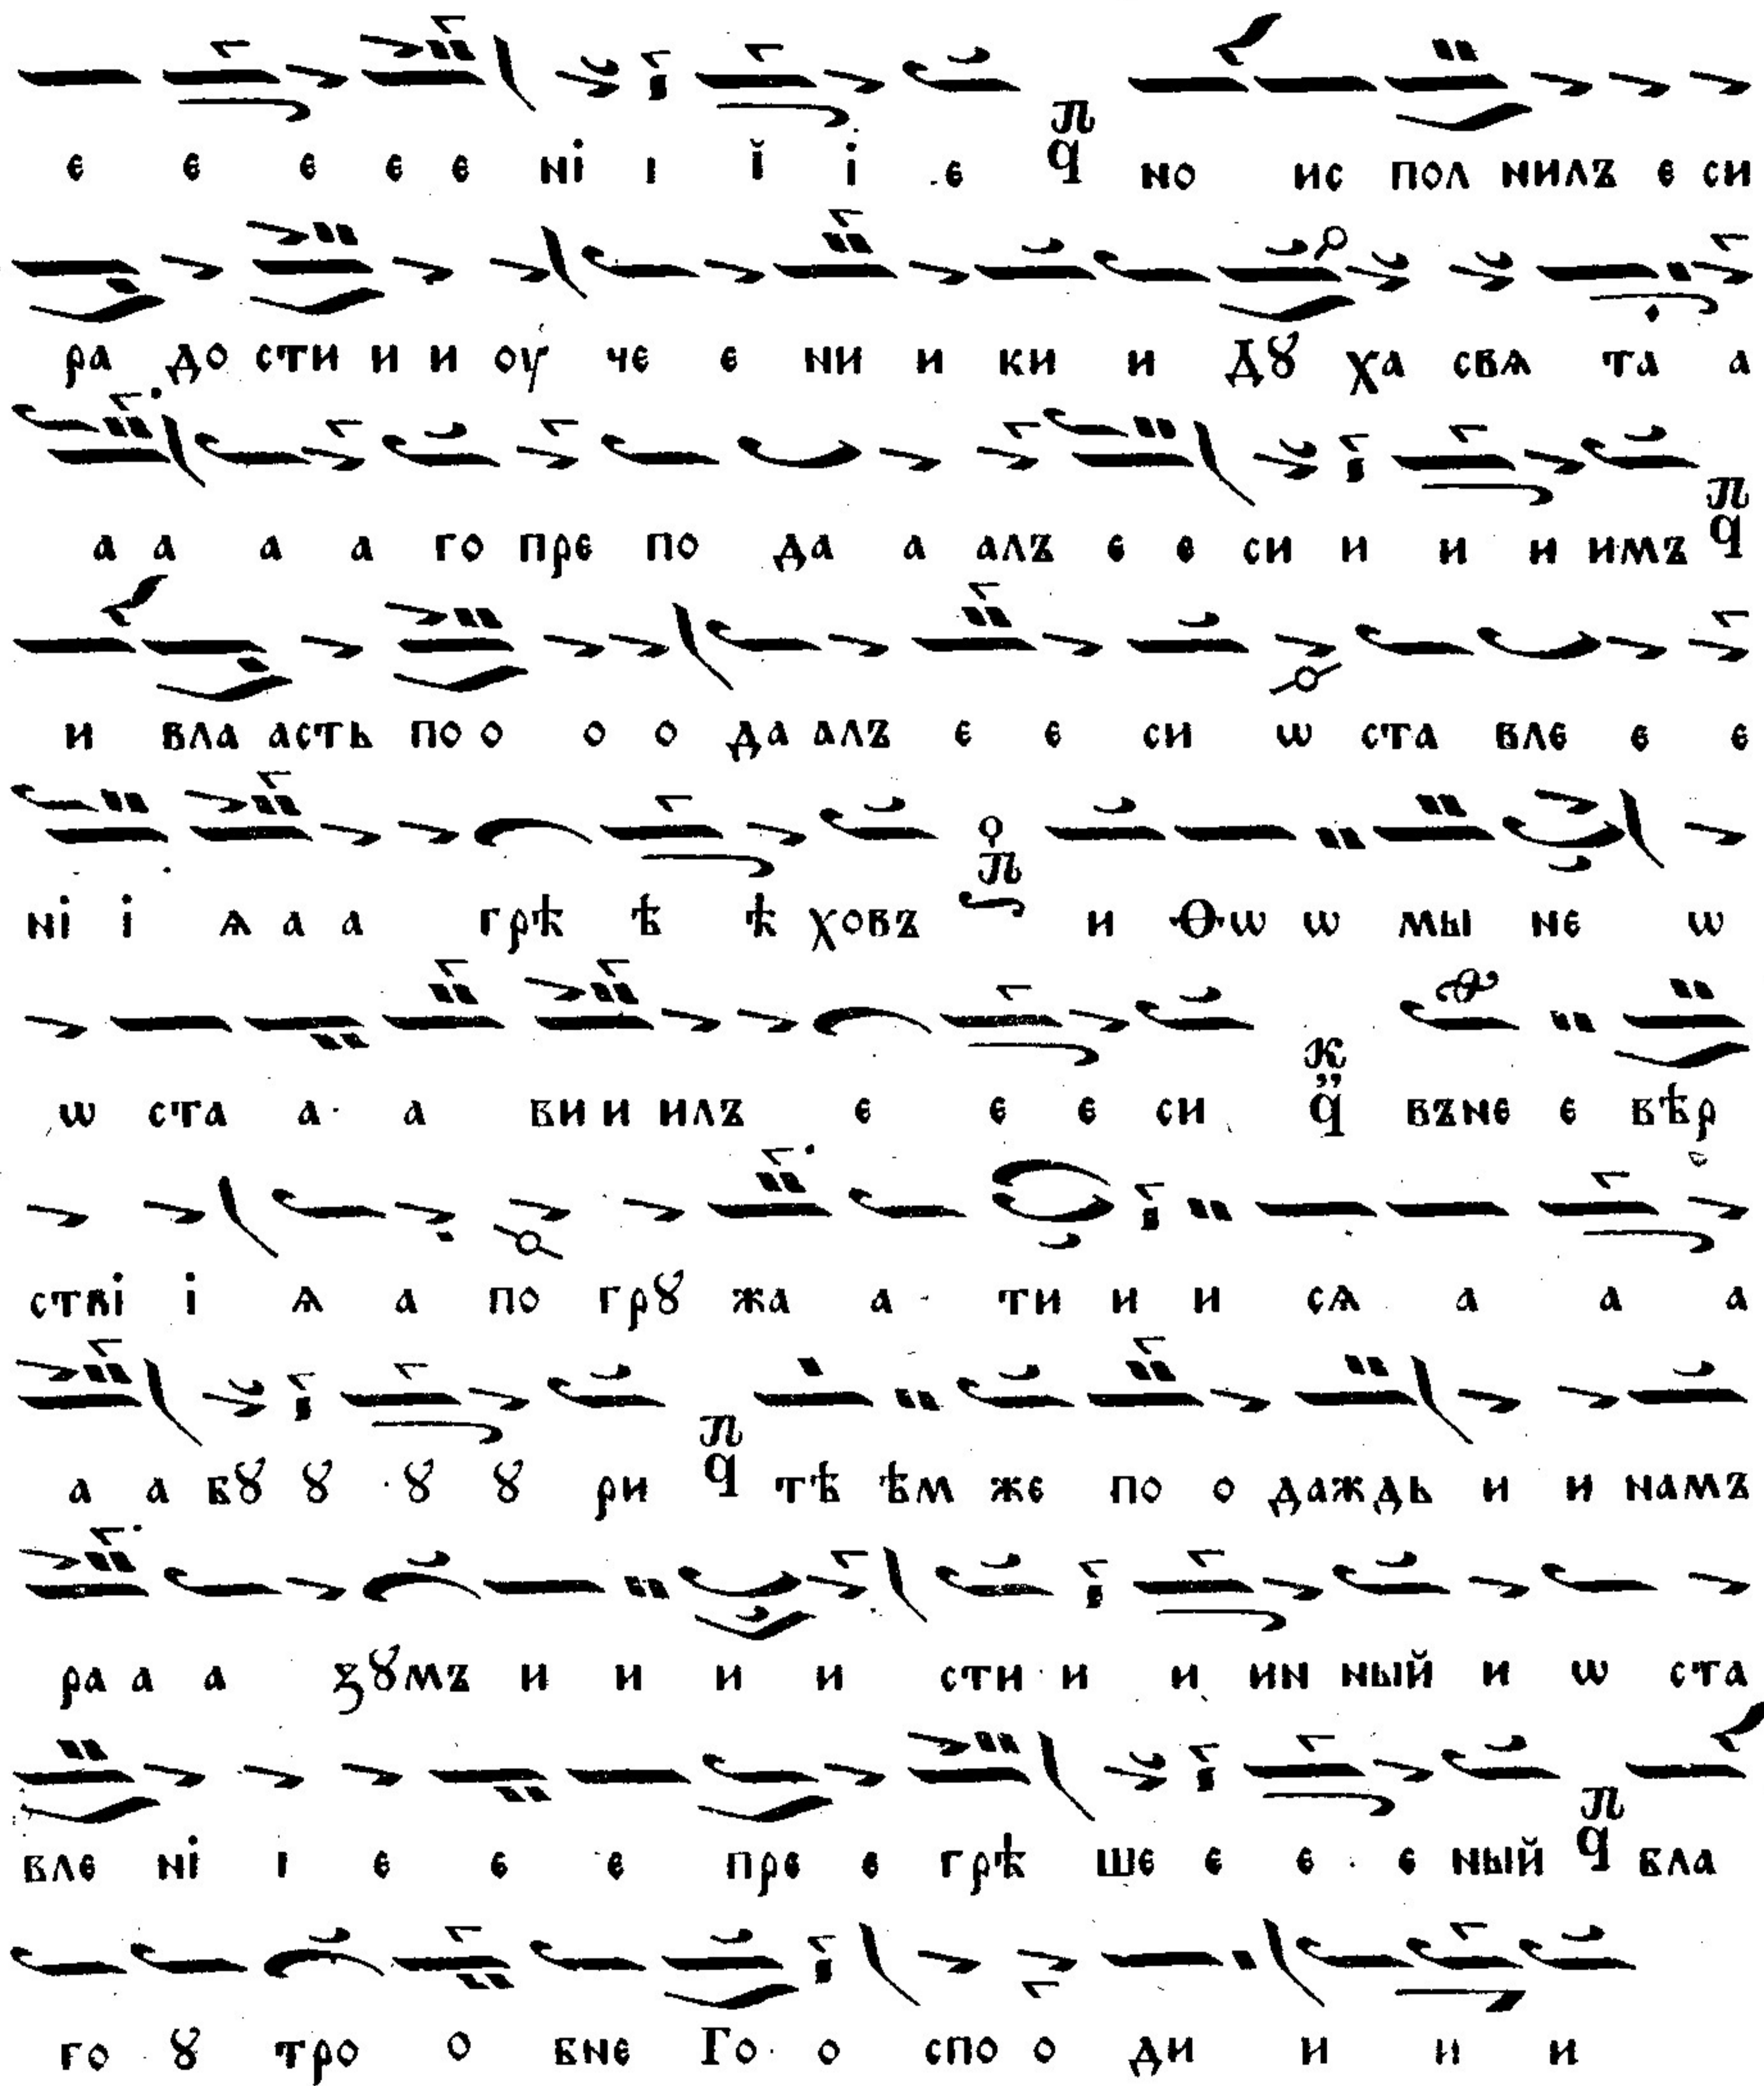 е е е е е нї ı ї і е П ҁ но ис пол нилъ е си
ра до сти и и оу че е ни и ки и Дꙋ ха свѧ та а
а а а а го пре по да а алъ е е си и и и имъ П ҁ
и вла асть по о о о да алъ е е си ѡ ста вле е е
нї і ѧ а а грѣ ѣ ѣ ховъ П и Ѳѡ ѡ мы не ѡ
ѡ ста а а ви и илъ е е е си К ҁ въне е вѣр
стві і ѧ а по грꙋ жа а ти и и сѧ а а а
а а бꙋ ꙋ ꙋ ꙋ ри П ҁ тѣ ѣм же по о даждь и и намъ
ра а а зꙋмъ и и и и сти и и ин ный и ѡ ста
вле нї і е е е пре е грѣ ше е е е ный П ҁ бла
го ꙋ тро о бне Го о спо о ди и и и